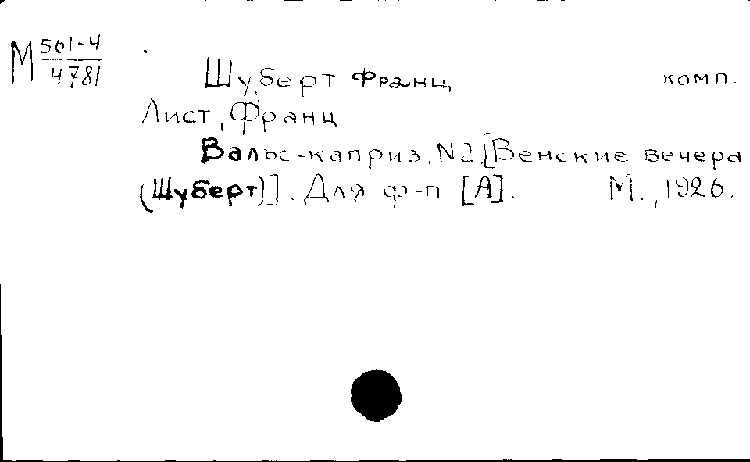 М 501-4
4781
Шуберт Франц комп.
Лист, Франц
Вальс-каприз, N2 [Венские вечера
(Шуберт)]. Для ф-п [А]. М., 1926.